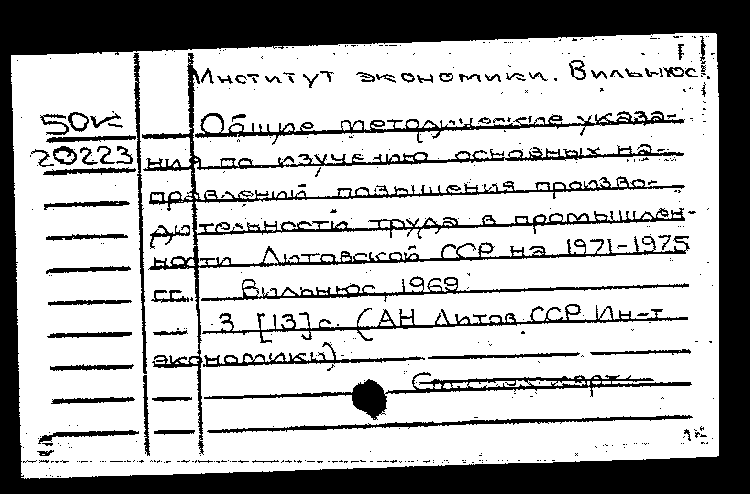 I
Институт экономики. Вильнюс.
50к Общие методические указа-
20223 ния по изучению основных на-
правлений повышения произво-
дительности труда в промышлен-
ности Литовской ССР на 1971-1975
гг. Вильнюс, 1969.
3, [13] с. (АН Литов ССР Ин-т
экономики)